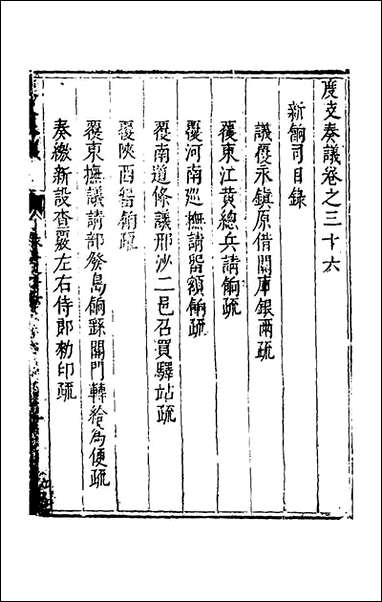 度支奏議卷之三十六
新餉司目錄
議覆永鎮原借關庫銀兩疏
覆東江黃總兵請餉疏
覆河南巡撫請留額餉疏
覆南道條議邢沙二邑召買驛站疏
覆陝西留餉疏
覆東撫議請部發島餉繇關門轉給爲便疏
奏繳新設查覈左右侍郎勑印疏